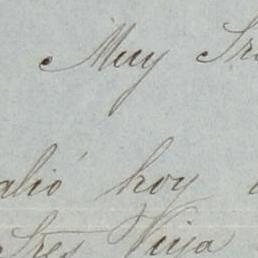 Muy Sr
alió hoy
tres Viya